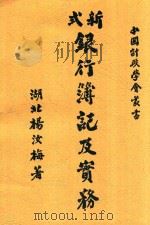 中國計政學會叢書
新式
銀行簿記及實務
湖北楊汝梅著